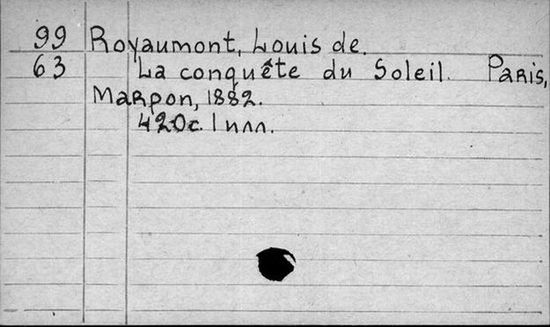 99 Royaumont, Louis de.
63 La conquête du Soleil. Paris,
Marpon, 1882.
420c. 1 илл.